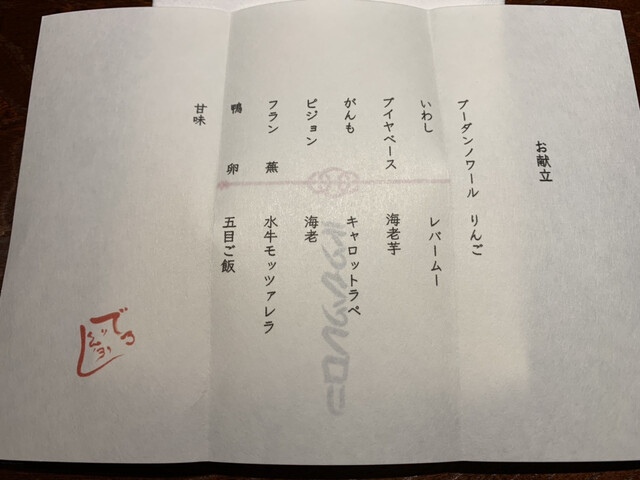 お献立
ブーダンノワール りんご
いわし レバームー
ブイヤベース 海老芋
がんも キャロットラペ
ピジョン 海老
フラン 蕪 水牛モッツァレラ
鴨 卵 五目ご飯
甘味